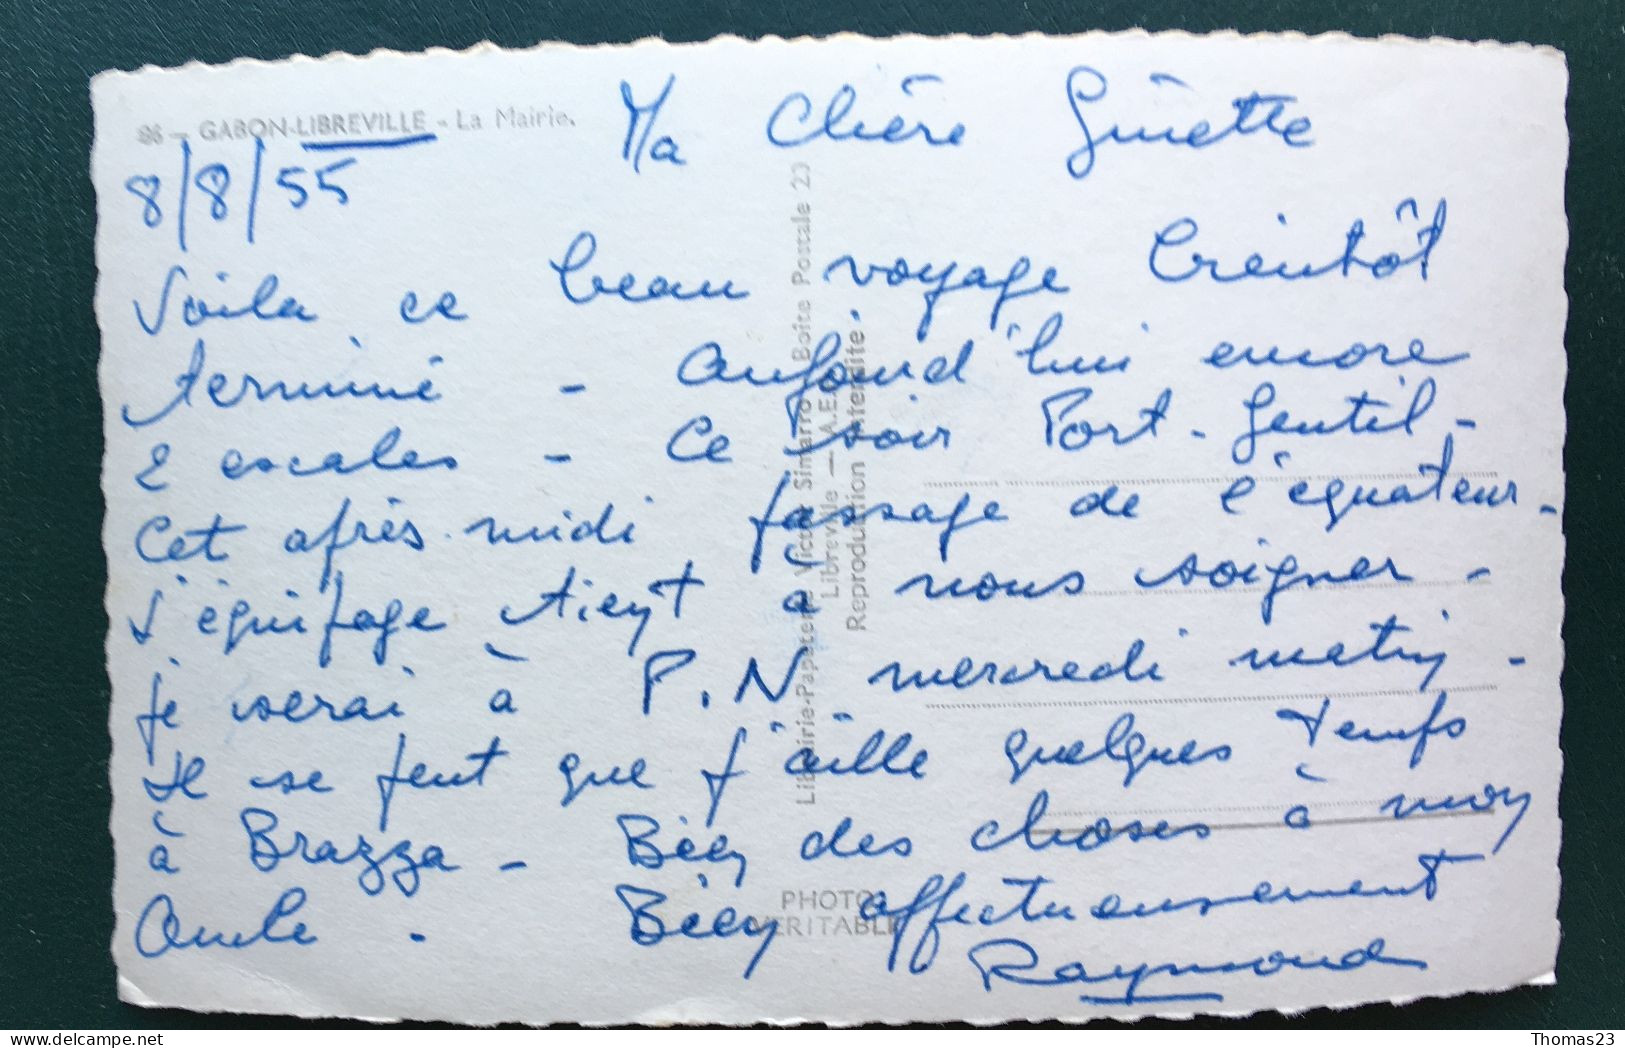 86 - GABON-LIBREVILLE - La Mairie.
8/8/55
Ma Chère Ginette
Voila ce beau voyage bientôt
terminé - Aujourd'hui encore
2 escales - Ce soir Port-Gentil -
Cet après-midi passage de l'équateur -
l'équipage tient à nous soigner -
je serai à P.N. mercredi matin -
Il se peut que j'aille quelques temps
à Brazza - Bien des choses à mon
Oncle. Bien affectueusement
Raymond
Librairie-Papeterie Victor Simarro Boîte Postale 23
Libreville — A.E.F.
Reproduction interdite
PHOTO
VERITABLE
Thomas23